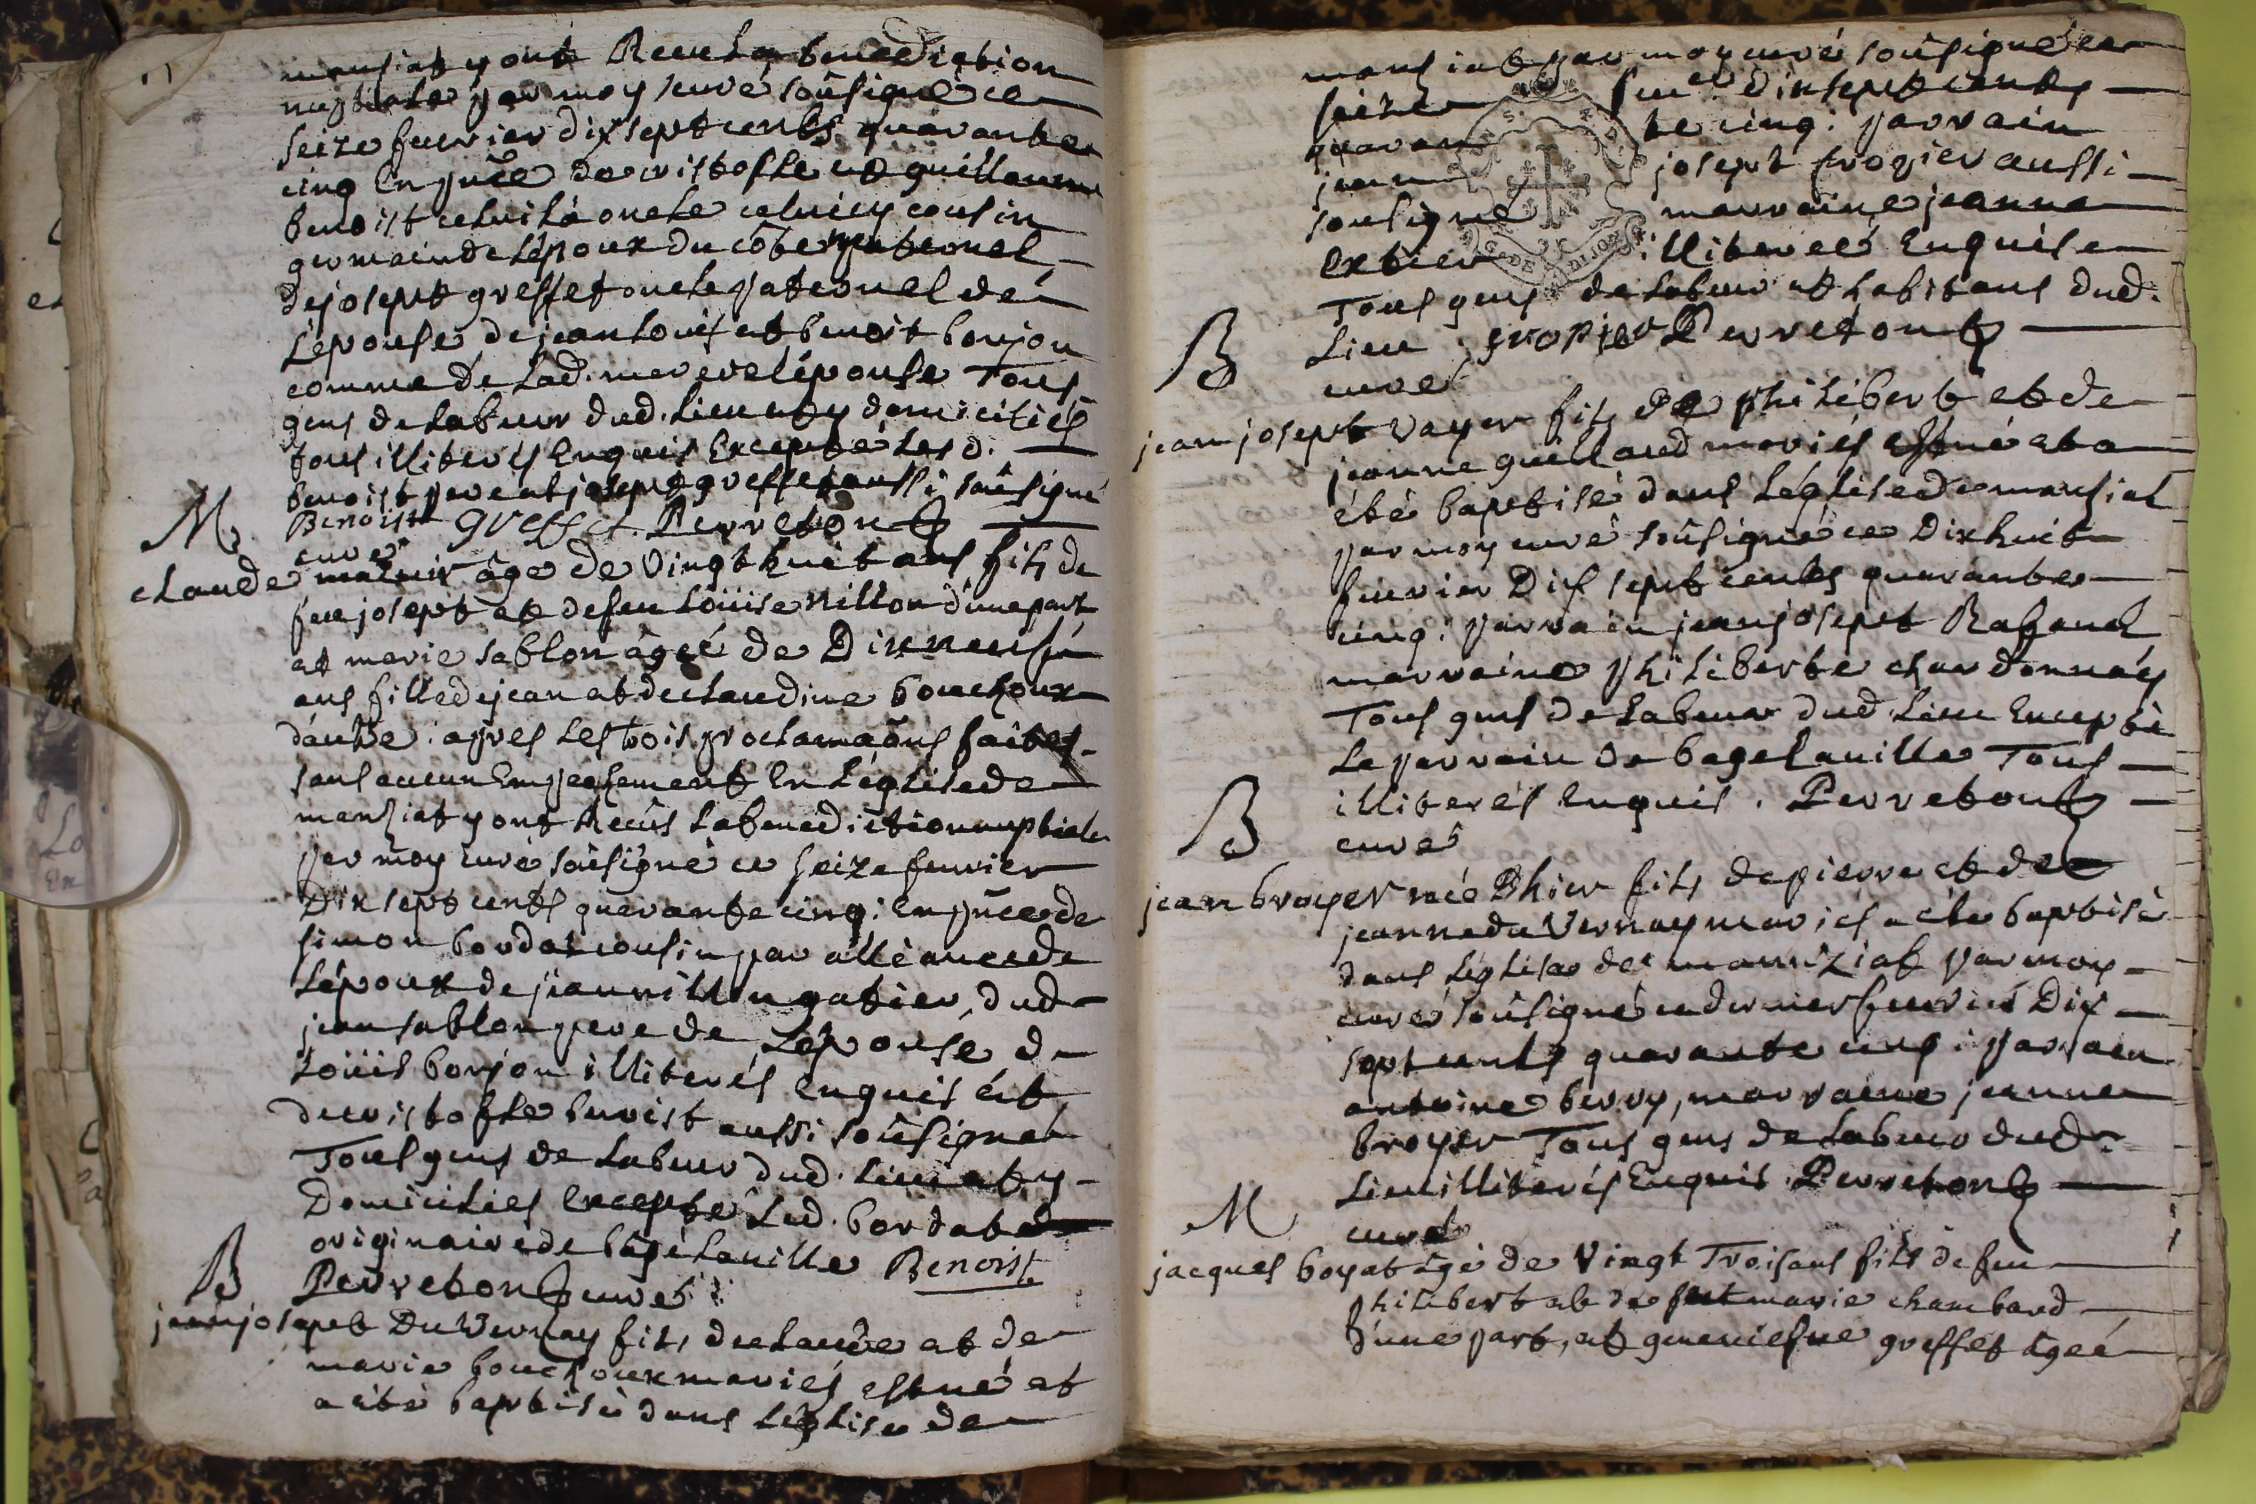 manziat y ont Receu la benediction
nuptiale par moy curé soûsigné ce
seize fevrier dix sept cents quarante
cinq En pñce de cristofle et guillaume
benoist celui là oncle celuicy cousin
germain de L'époux du côte paternel
de josept greffet oncle paternel de
L'épouse de jean Loüis et benoit bonjon
comme de Lad. mere de l'épouse Tous
gens de Labeur dud. Lieu et y domiciliés
tous illiterés Enquis Excepté Les d.
benoist pere et josept greffet aussi soûsigné
Benoist greffet Perreton
curé
M
claude âgé de Vingt huit ans fils de
feu josept et de feu Loüise Nillon d'une part
et marie sablon âgée de Dixneuf
ans fille de jean et de claudine bouchoux
d'autre : apres Les trois proclamaõns faites
sans aucun Empechement En L'église de
manziat y ont Receüs La benediction nuptiale
par moy curé soûsigné ce seize fevrier
Dix sept cents quarante cinq : En pñce de
simon bordat cousin par alliance de
L'époux de jean nillon dud.
jean sablon pere de L'épouse de
Loüis bonjon illiterés Enquis et
de cristofle benoist aussi soûsigné
Tous gens de Labeur dud. Lieu et y
Domiciliés Excepté Led. bordat
originaire de bâgé La ville Benoist
Perreton curé
B
jean josept DuVernay fils de claude et de
marie bouchoux mariés est né et
a été baptisé dans L'église de
manziat par moy curé soûsigné ce
seize fev.er dix sept cents
quarante cinq : parrain
jean josept frogier aussi
soûsigné marraine jeanne
illiterée Enquise
Tous gens de Labeur et habitans dud.
Lieu frogier Perreton
curé
B
jean josept Vayer fils de philibert et de
jeanne guilland mariés est né et a
été baptisé dans L'église de manziat
par moy curé soûsigné ce Dix huit
fevrier Dix sept cents quarante
cinq : parrain jean josept
marraine philiberte chardonnay
Tous gens de Labeur dud. Lieu Excepté
Le parrain de bagé La ville Tous
illiterés Enquis . Perreton
curé
B
jean broyer né hier fils de pierre et de
jeanne du Vernay mariés a été baptisé
dans L'église de manziat par moy
curé soûsigné ce dernier fevrier Dix
sept cents quarante cinq : parrain
antoine berry, marraine jeanne
broyer Tous gens de Labeur dud.
Lieu illiterés Enquis . Perreton
curé
M
jacques boyat âgé de Vingt Trois ans fils de feu
philibert et de marie chambard
d'une part, et genevieve greffet âgée